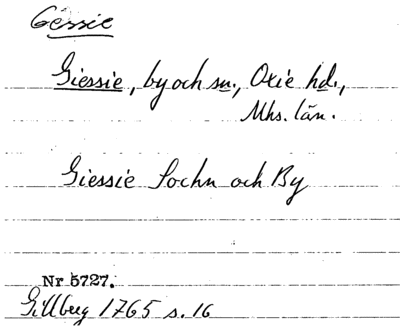 Gessie
Giessie, by och sn., Oxie hd.,
Mhs. län.
Giessie Sochn och By
Nr 5727.
Gillberg 1765 s. 16